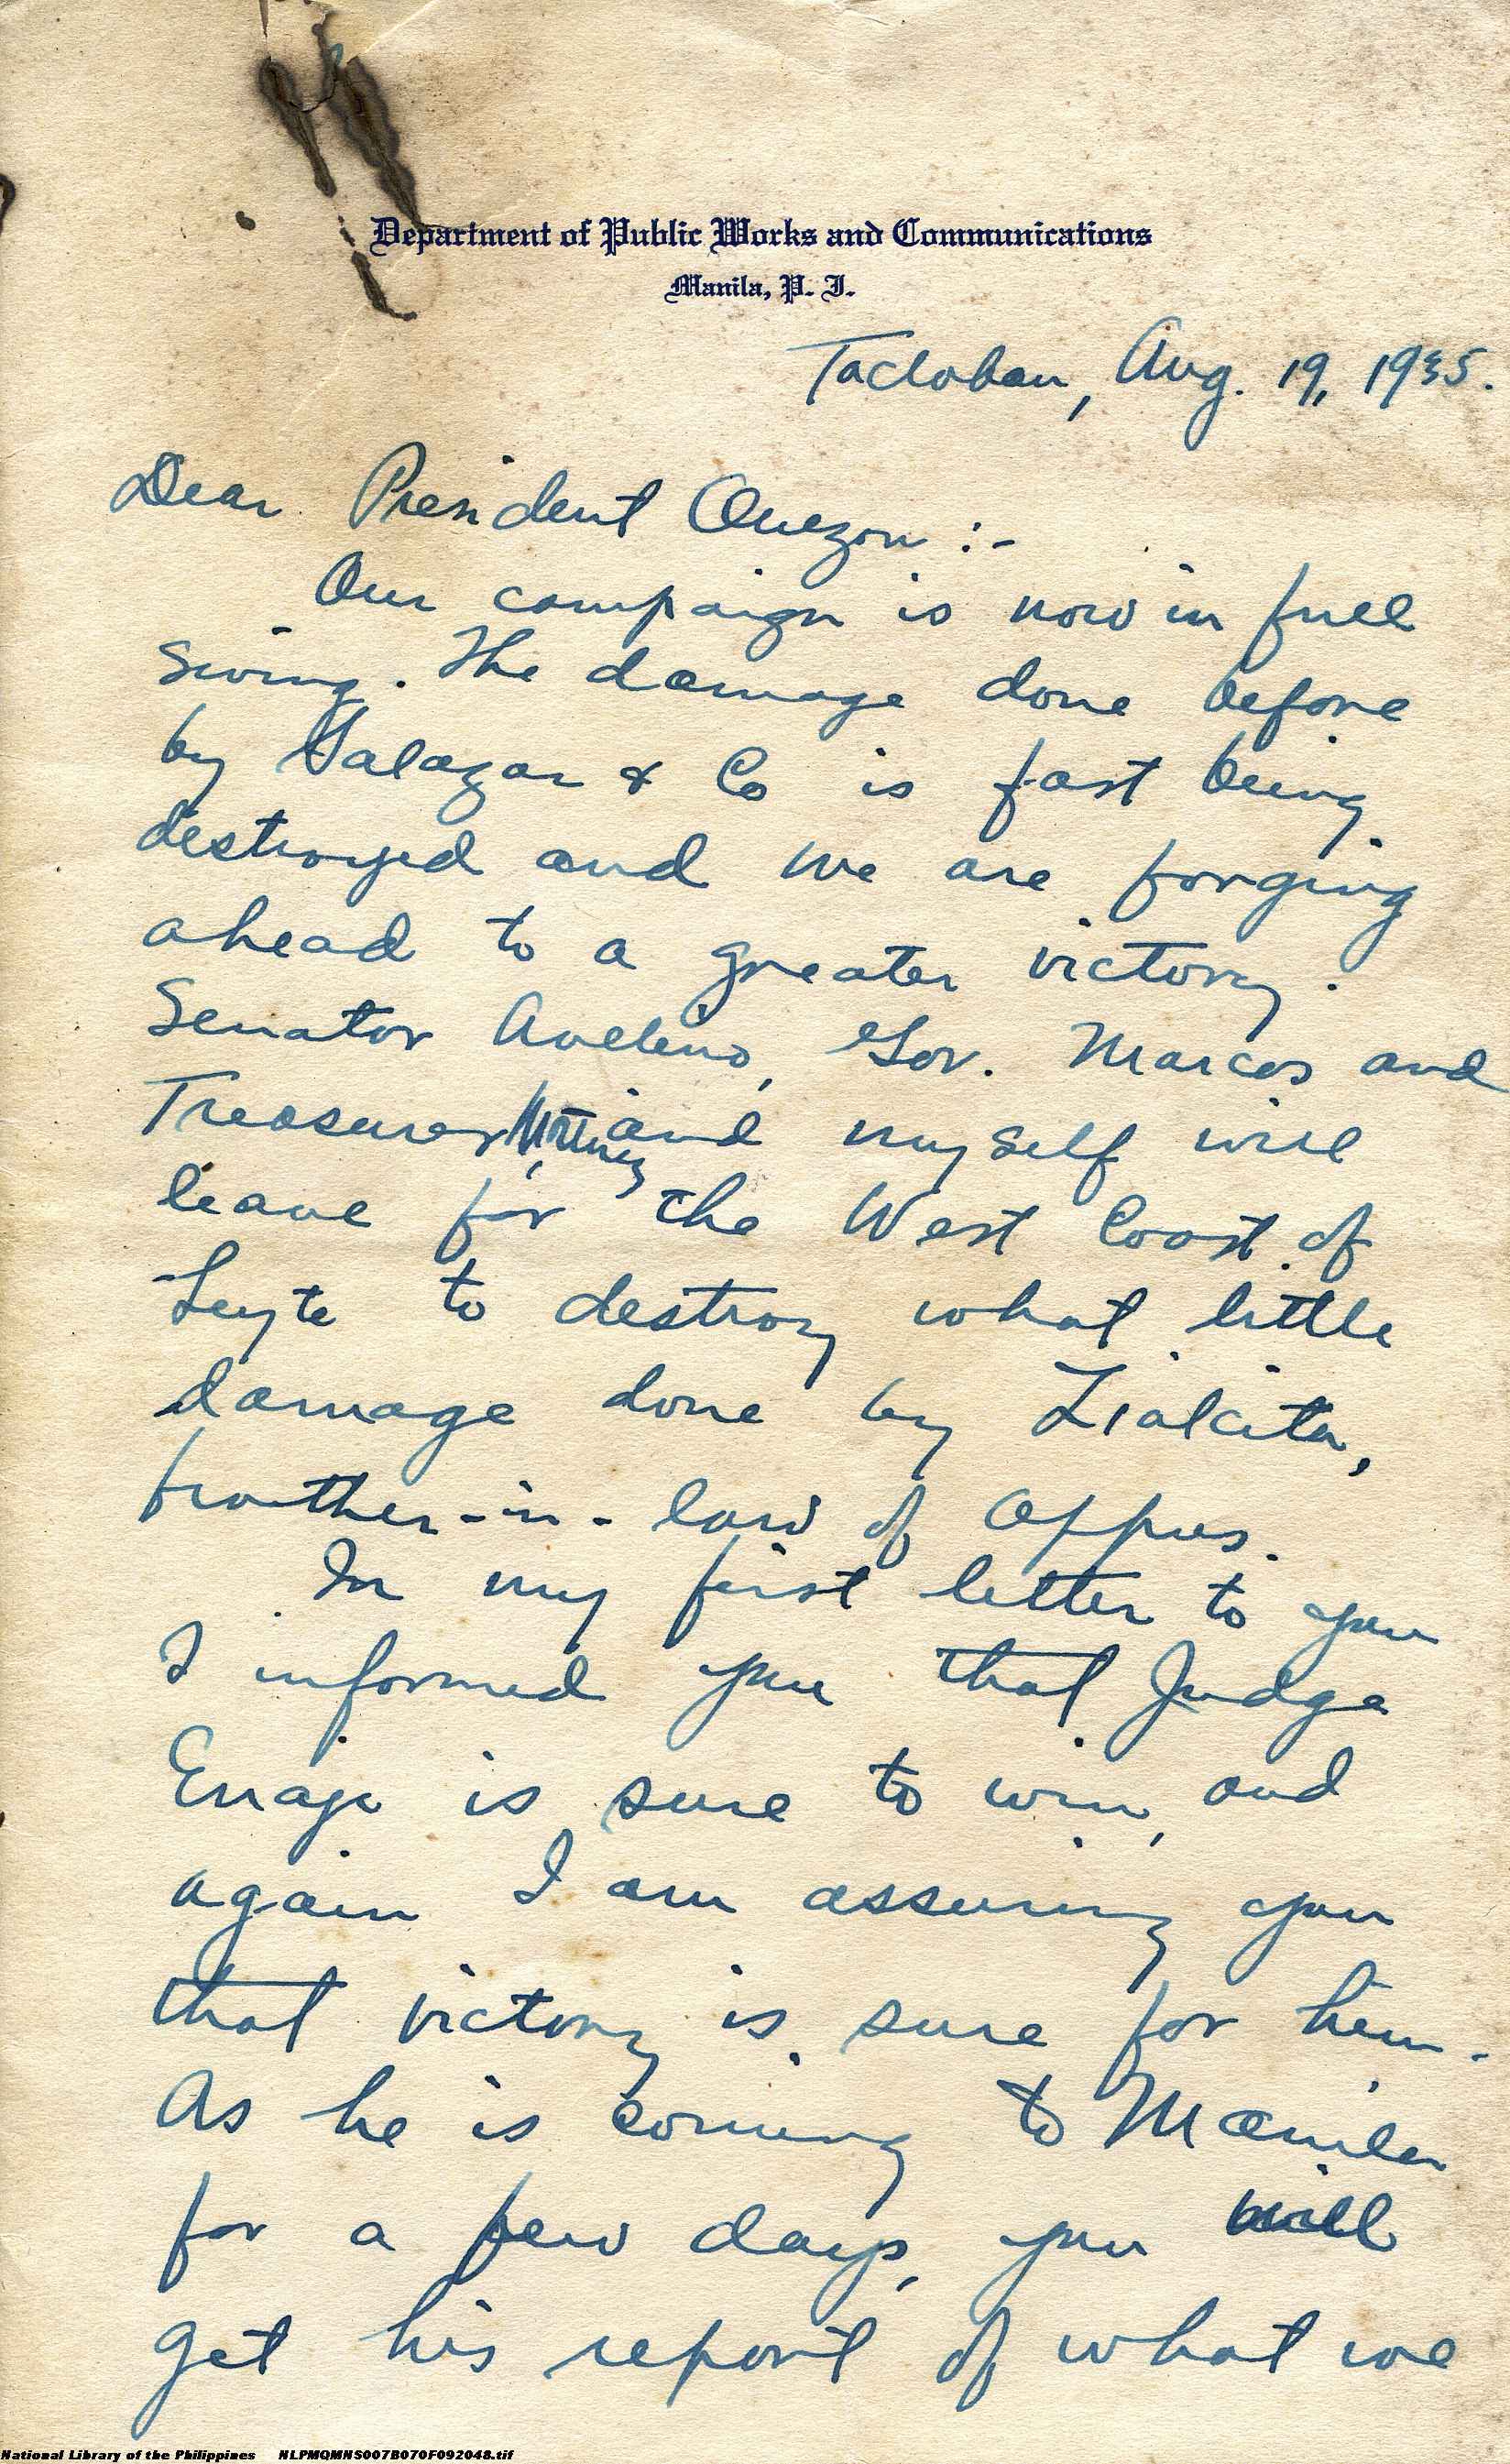 Department of Public Works and Communications
Manila, P. I.
Tacloban, Aug. 19, 1935.
Dear President Quezon :-
Our campaign is now in full
swing. The damage done before
by Salazar & Co is fast being
destroyed and we are forging
ahead to a greater victory.
Senator Avelino, Gov. Marcos and
Treasurer and myself will
leave for the West Coast of
Leyte to destroy what little
damage done by
brother-in-law of Oppus.
In my first letter to you
I informed you that Judge
Enage is sure to win, and
again I am assuring you
that victory is sure for him.
As he is coming to Manila
for a few days, you will
get his report of what we
National Library of the Philippines NLPMQMNS007B070F092048.tif